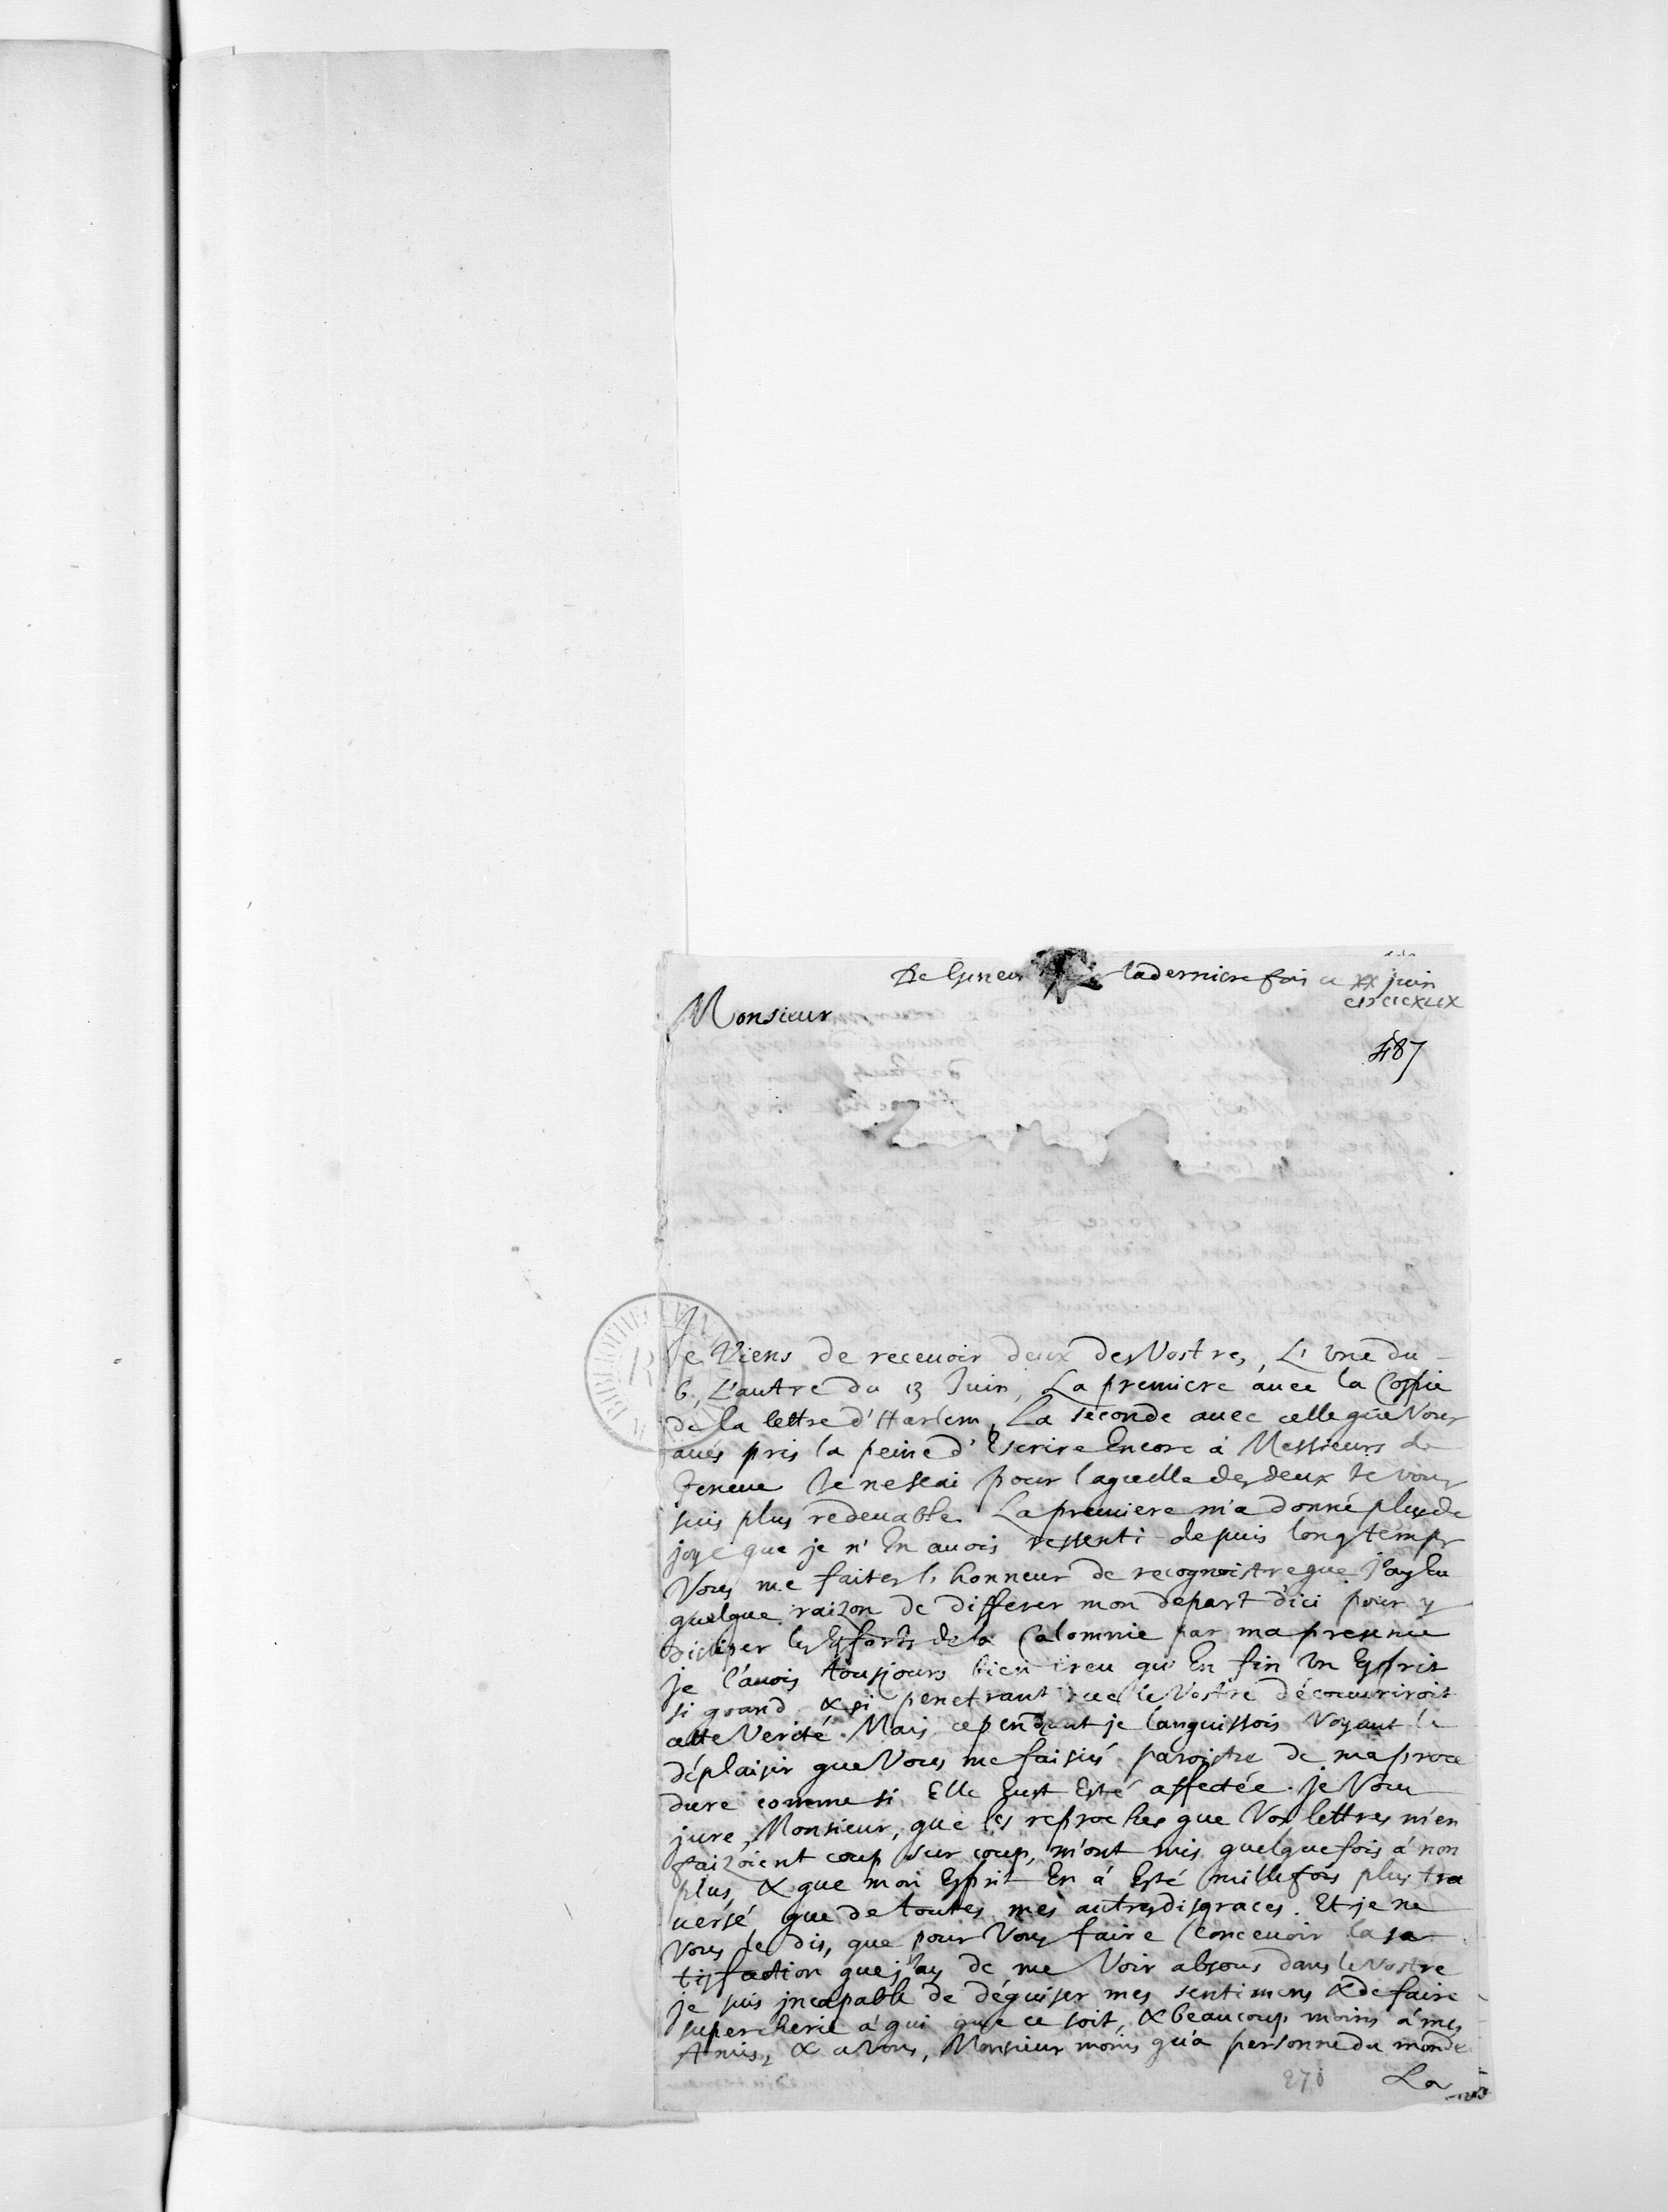 De Geneve la derniere fois ce xx juin
CIƆIƆCXLIX
Monsieur
487
Je Viens de recevoir deux des Vostres, L'une du
6, L'autre du 13 Juin, La premiere avec la Copie
de la lettre d'Harlem, La seconde avec celle que Vous
avés pris la peine d'Escrire Encore à Messieurs de
Geneve Je ne scai pour laquelle des deux Je vous
suis plus redevable. La premiere m'a donné plus de
joye que je n'En avois ressenti depuis longtemps
Vous me faites l'honneur de recognoistre que J'ay Eu
quelque raizon de differer mon depart d'ici pour y
dissiper les Efforts de la Calomnie par ma presence
je l'avois tousjours bien creu qu'En fin Un Esprit
si grand & si penetrant que le Vostre découvriroit
cette Verité. Mais cependant je languissois Voyant le
déplaisir que Vous me faisiés paroistre de ma proce
dure comme si Elle Eust Esté affectée. je Vous
jure, Monsieur, que les reproches que Vos lettres m'en
faizoient coup sur coup, m'ont mis quelquefois à non
plus, & que mon Esprit En à Esté mille fois plus tra
versé que de toutes mes autres disgraces. Et je ne
Vous le dis, que pour Vous faire Concevoir la sa
tisfaction que j'ay de me Voir absous dans le Vostre
je suis jncapable de déguiser mes sentimens & de faire
supercherie à qui que ce soit, & beaucoup moins à mes
Amis, & a Vous, Monsieur moins qu'à personne du monde
278 La